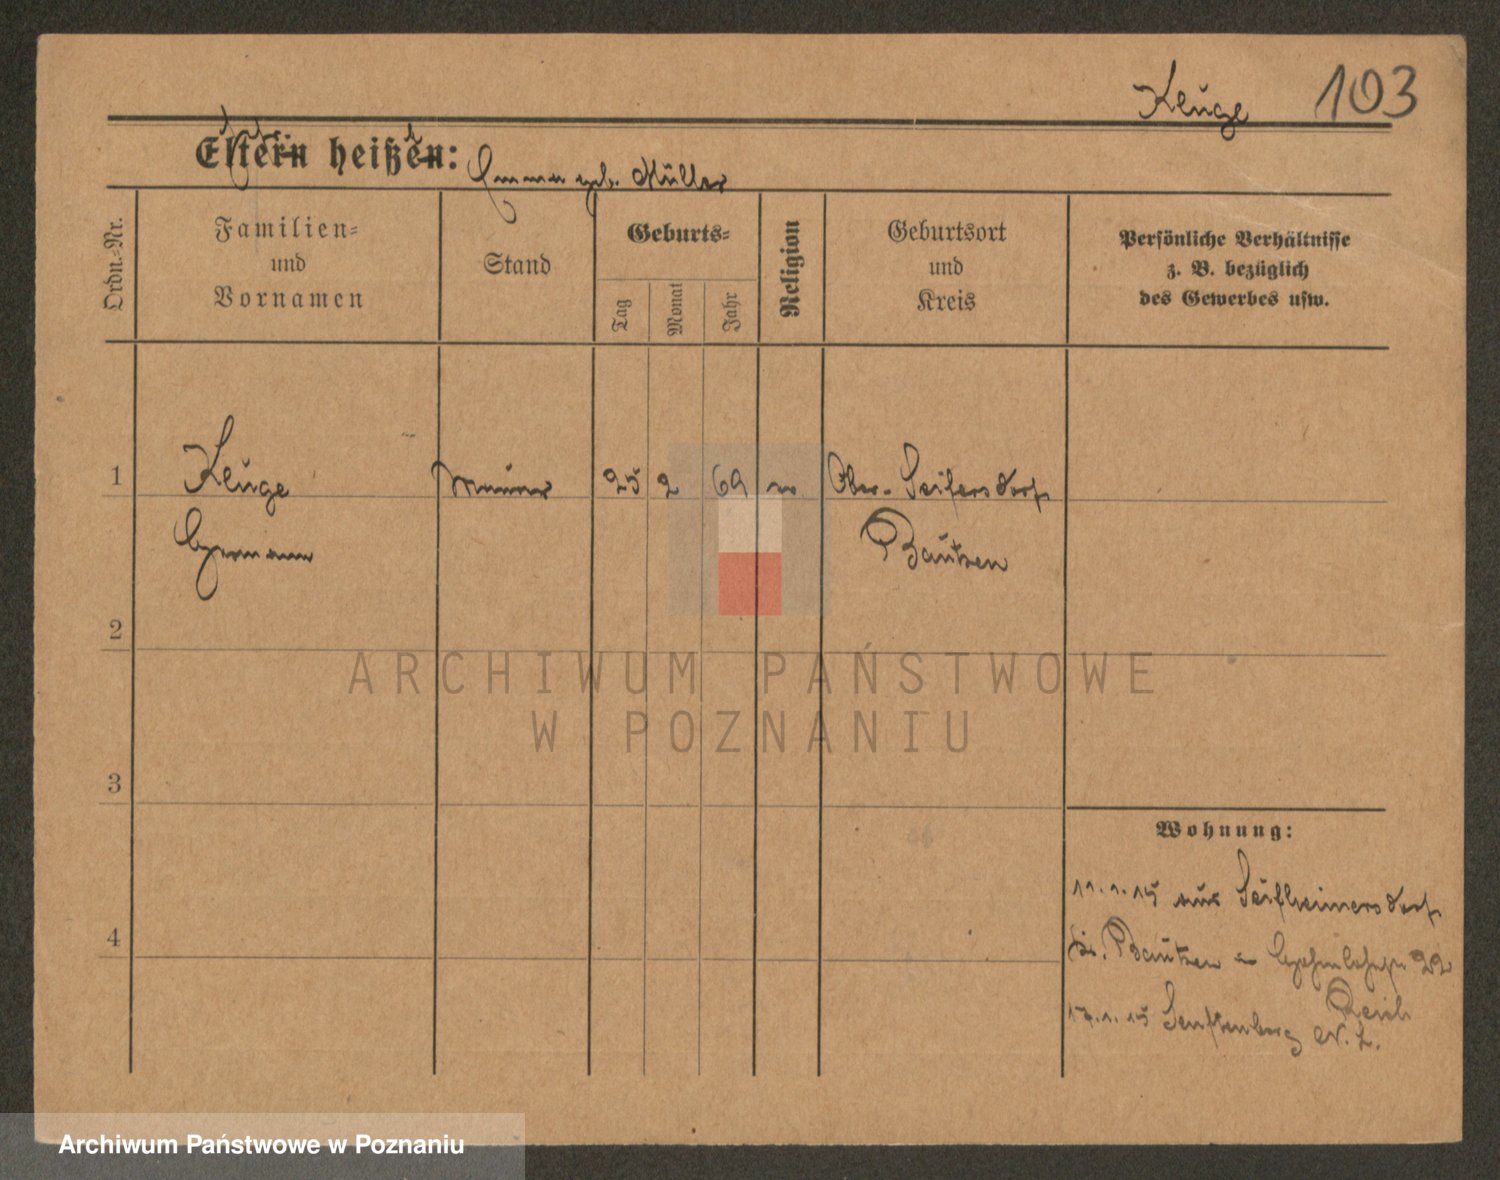 Kluge 103
Eltern heißen: Emma geb. Müller
Ordn.-Nr.
Familien-
und
Vornamen
Stand
Geburts-
Tag
Monat
Jahr
Religion
Geburtsort
und
Kreis
Persönliche Verhältnisse
z. B. bezüglich
des Gewerbes usw.
1 Kluge Maurer 25 2 69 Ober-Seifersdorf
Hermann Bautzen
2
3
4
Wohnung:
11.1.15 aus
Kr. Bautzen 22
Reich
17.1.15 Senftenberg N. L.
ARCHIWUM PAŃSTWOWE
W POZNANIU
Archiwum Państwowe w Poznaniu